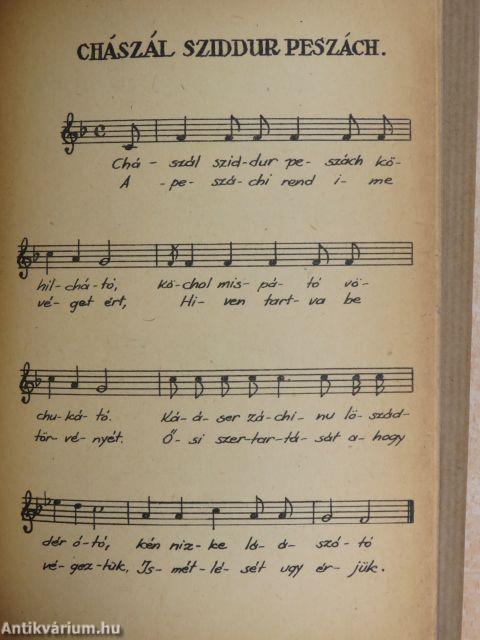 CHÁSZÁL SZIDDUR PESZÁCH.
Chá- szál szid-dur pe- szách kö-
A -pe- szá-chi rend i- me
hil-chá-tó, kö-chol mis-pá- tó vö-
vé-get ért, Hi- ven tart-va be
chu-ká-tó. Ká-á-ser zá-chi- nu lö-szád-
tör-vé-nyét. Ő-si szer-tar-tá-sát a-hogy
dér ó-tó, kén niz-ke lá-á- szó-tó
vé-gez-tük, Is-mét-lé-sét ugy ér- jük.
Antikvárium.hu